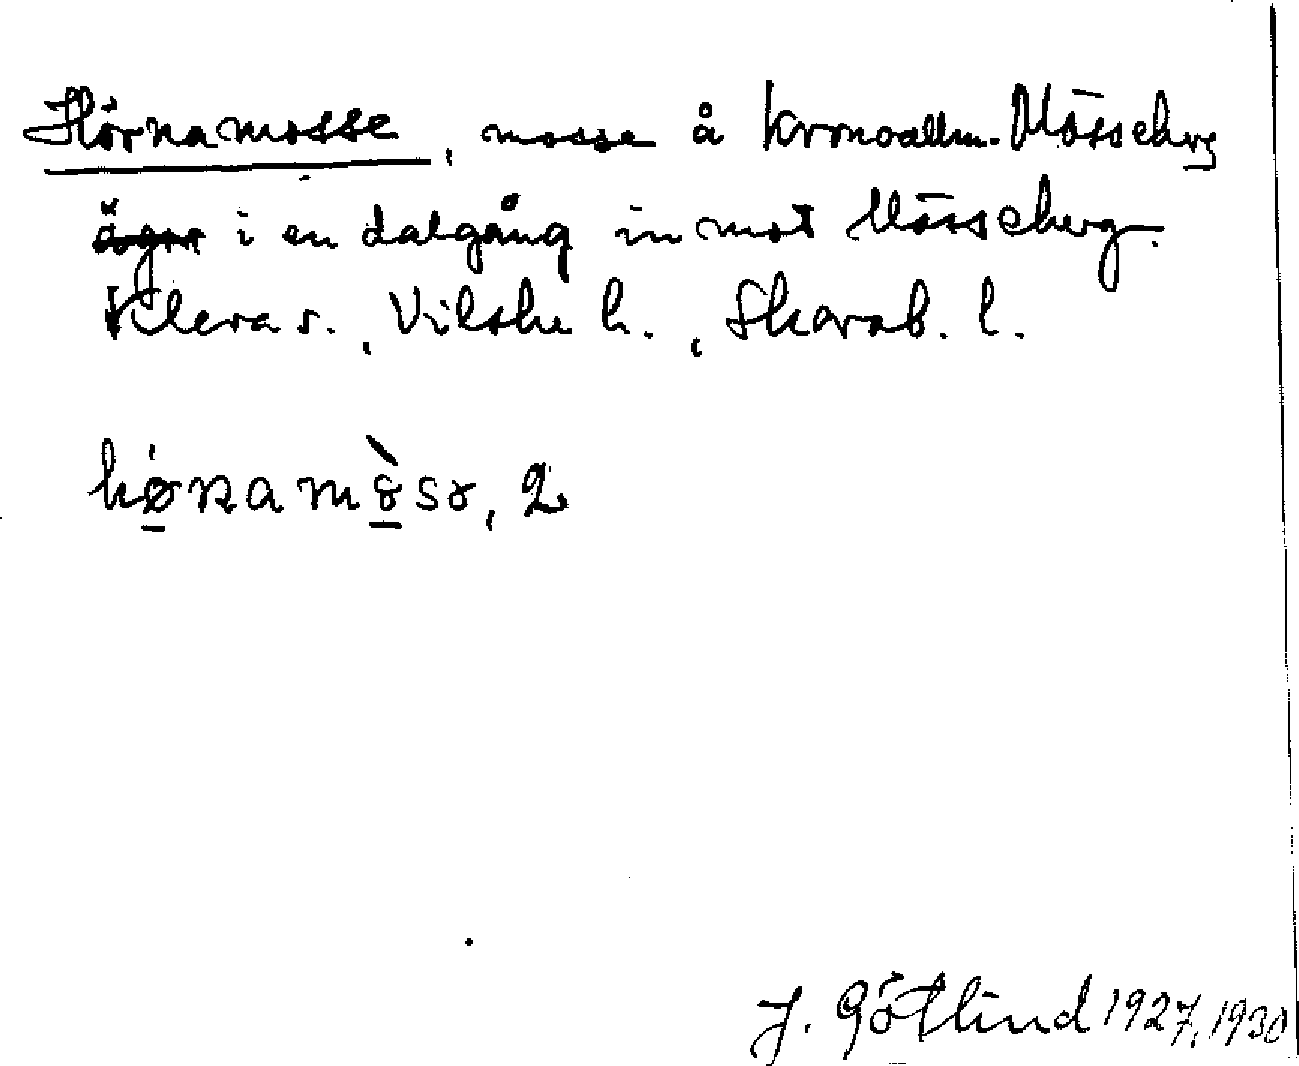 Hörnamosse, mosse å kronoallm. Mösseberg
äger i en dalgång in mot Mösseberg.
Kleva s., Vilske h., Skarab. l.
hø̱ṉamò̱sɤ, 2
J. Götlind 1927, 1930